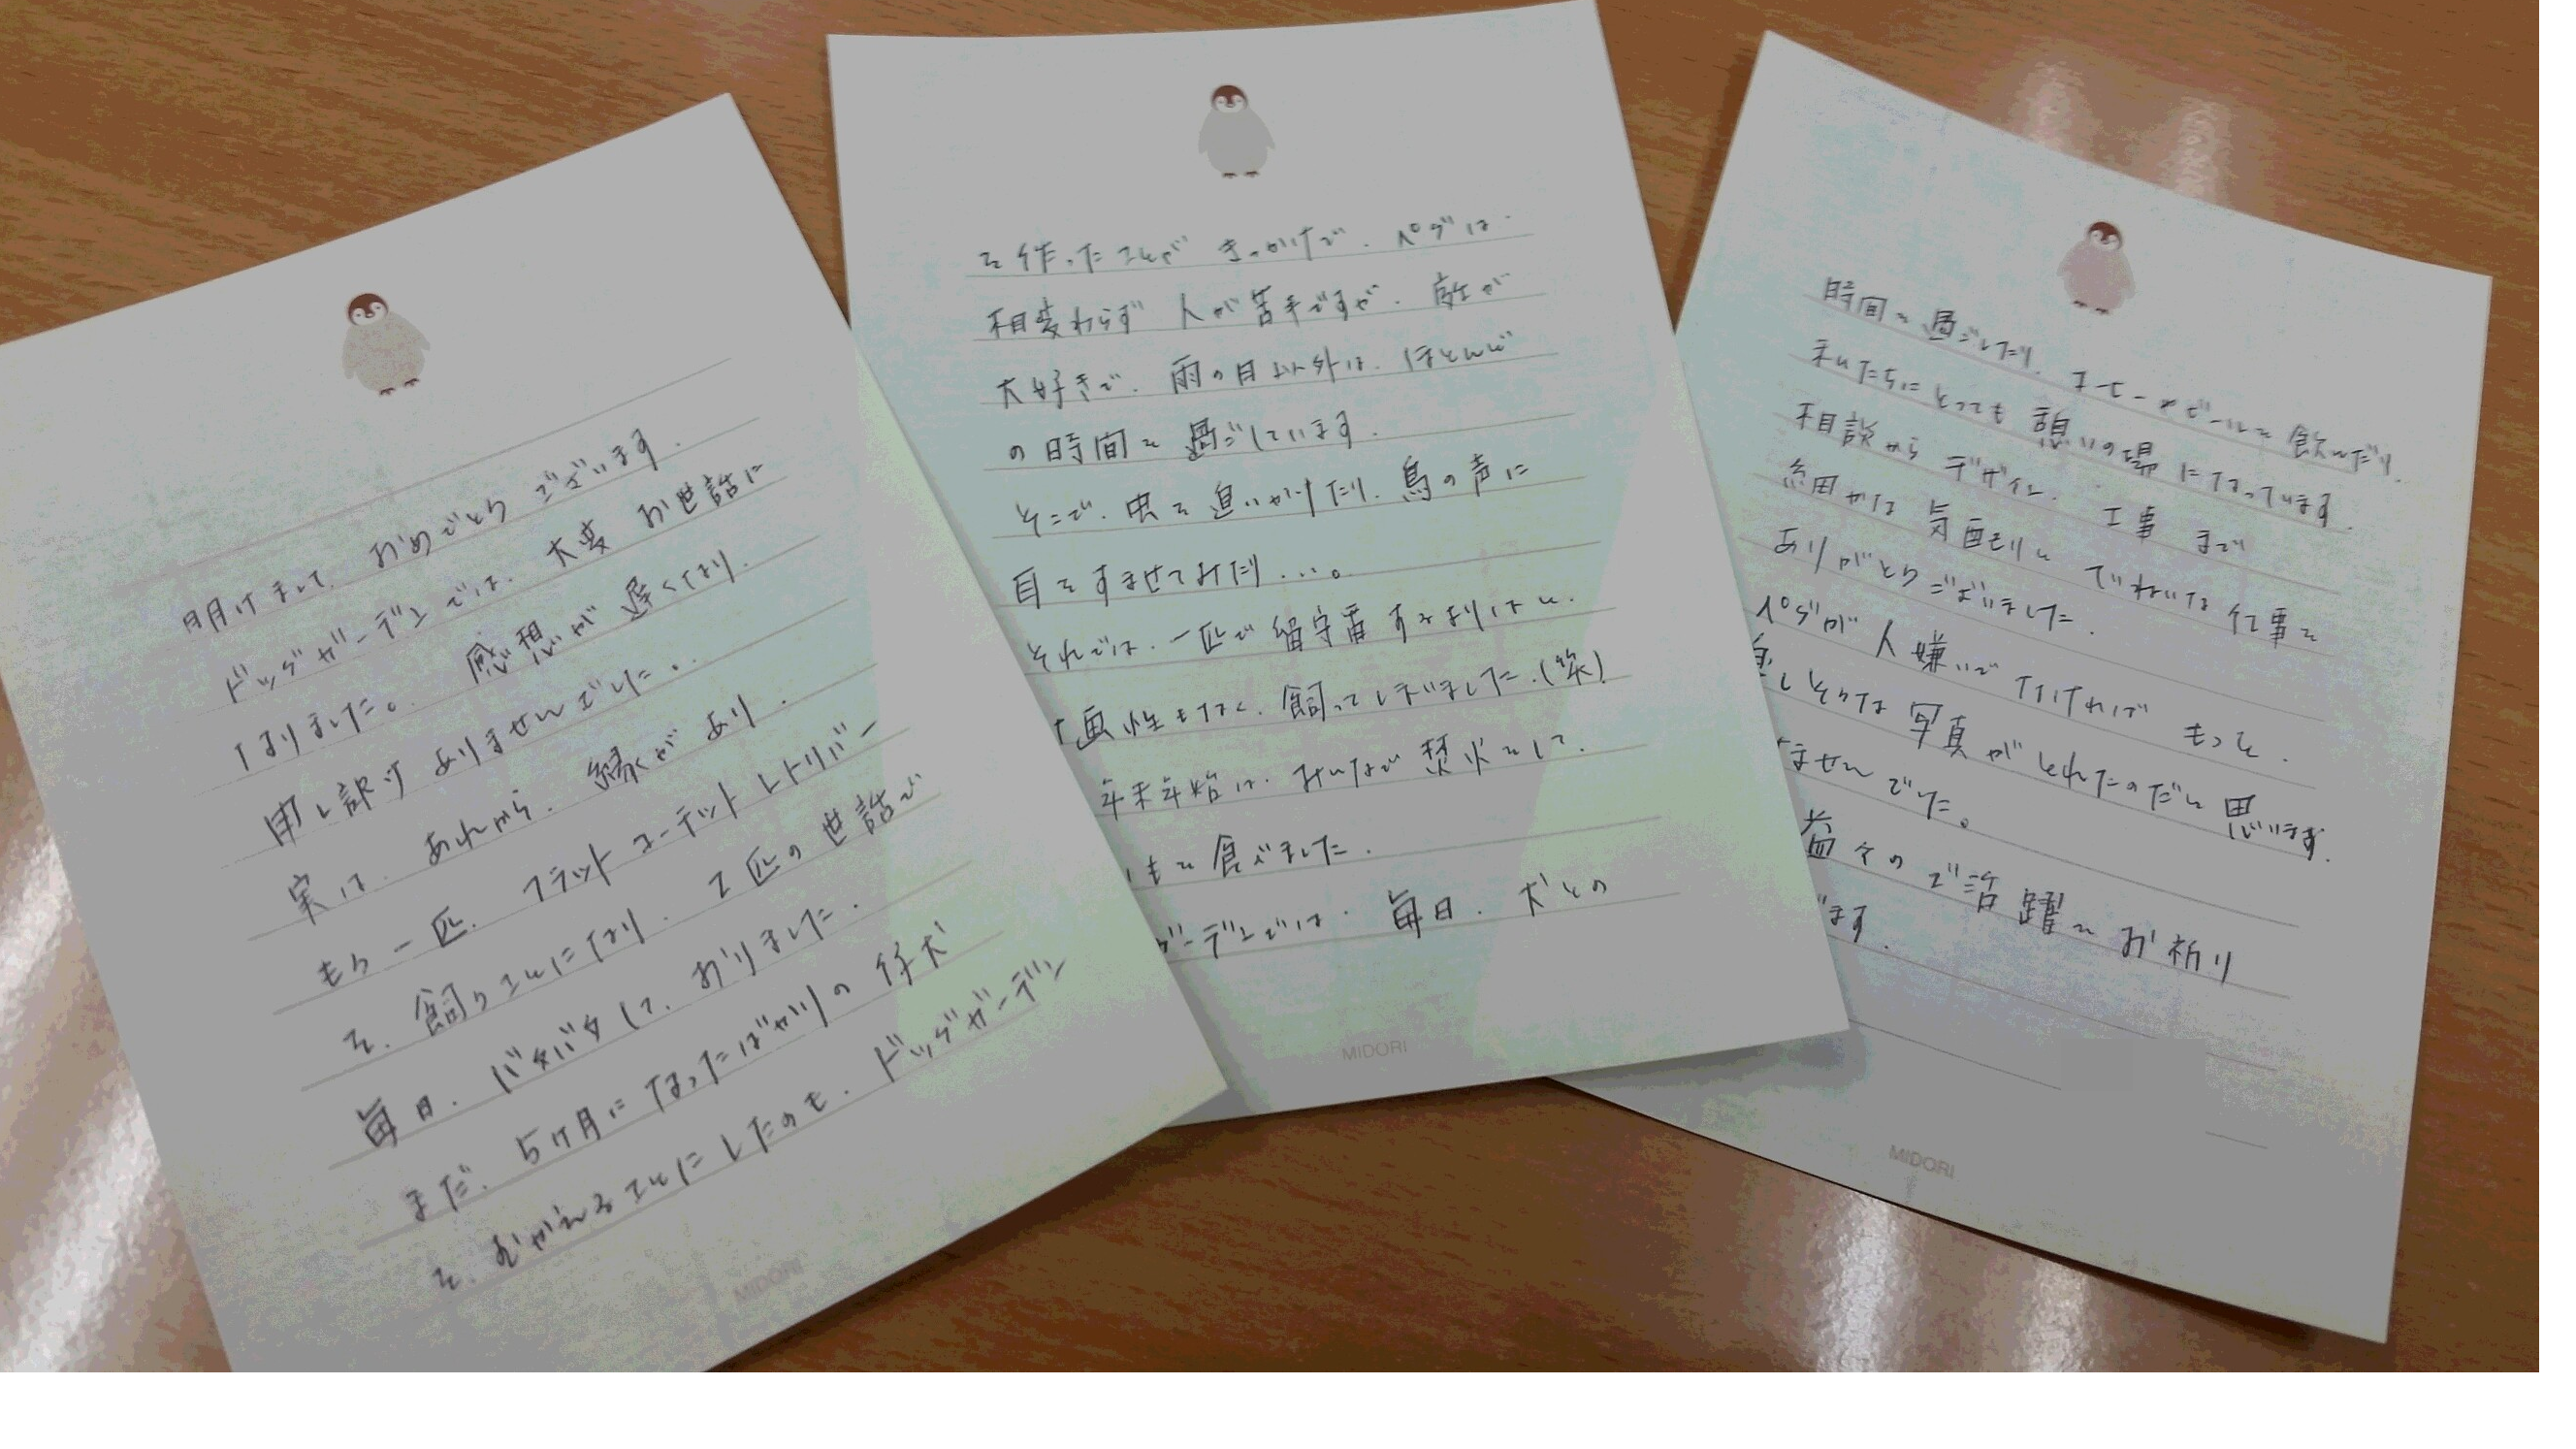 明けまして、おめでとう ございます.
ドッグガーデンでは、大変 お世話に
なりました。 感想が 遅くなり.
申し訳 ありませんでした.
実は、あれから、縁があり.
もう一匹、フラットコーテットレトリバー
を、飼うことになり、2匹の世話で
毎日、バタバタして、おりました.
まだ、5ヶ月になったばかりの仔犬
を、むかえることにしたのも、ドッグガーデン
MIDORI
を作ったことが きっかけで、ペグは、
相変わらず 人が苦手ですが、庭が
大好きで、雨の日以外は、ほとんど
の時間を 過ごしています.
そこで、虫を追いかけたり、鳥の声に
耳をすませてみたり...。
それでは、一匹で留守番するよりはと、
画性もなく、飼ってしまいました.(笑)
年末年始は、みんなで焚火をして、
いもを食べました.
ガーデンでは、毎日、犬との
MIDORI
時間を過ごしたり、コーヒーやビールを飲んだり、
私たちにとっても 憩いの場になっています.
相談から デザイン、工事まで
細かな気配りと ていねいな仕事を
ありがとうございました.
ペグが人嫌いで なければ もっと、
楽しそうな写真がとれたのだと思います.
ませんでした。
益々のご活躍をお祈り
ます.
MIDORI